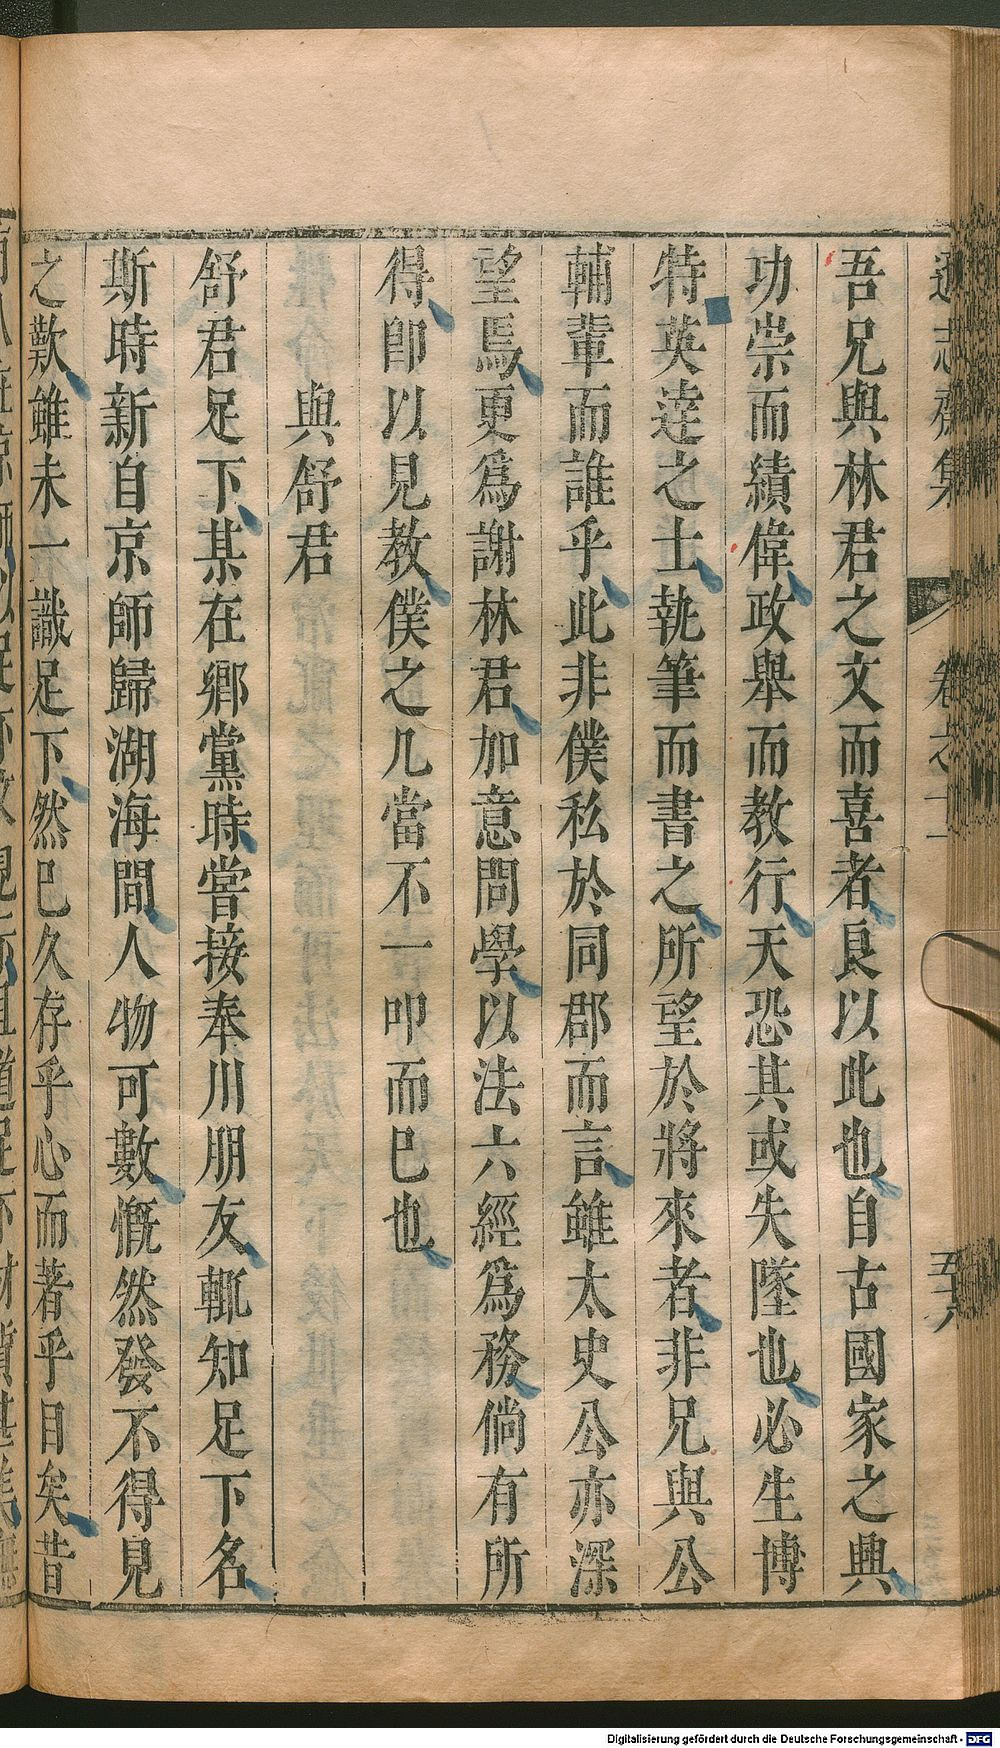 吾兄與林君之文而喜者良以此也自古國家之興
功崇而績偉政舉而教行天恐其或失墜也必生博
特英達之士執筆而書之所望於將來者非兄與公
輔輩而誰乎此非僕私於同郡而言雖太史公亦深
望焉更爲謝林君加意問學以法六經爲務倘有所
得卽以見教僕之几當不一叩而已也
與舒君
舒君足下某在鄉黨時嘗接奉川朋友輒知足下名
斯時新自京師歸湖海間人物可數慨然發不得見
之歎雖未一識足下然已久存乎心而著乎目矣昔
Digitalisierung gefördert durch die Deutsche Forschungsgemeinschaft - DFG